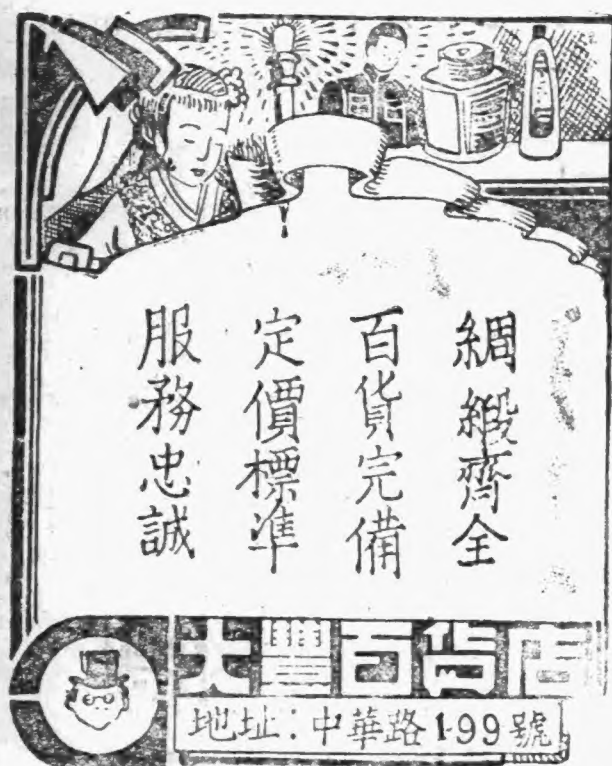 綢緞齊全
百貨完備
定價標準
服務忠誠
大豐百貨店
地址：中華路199號